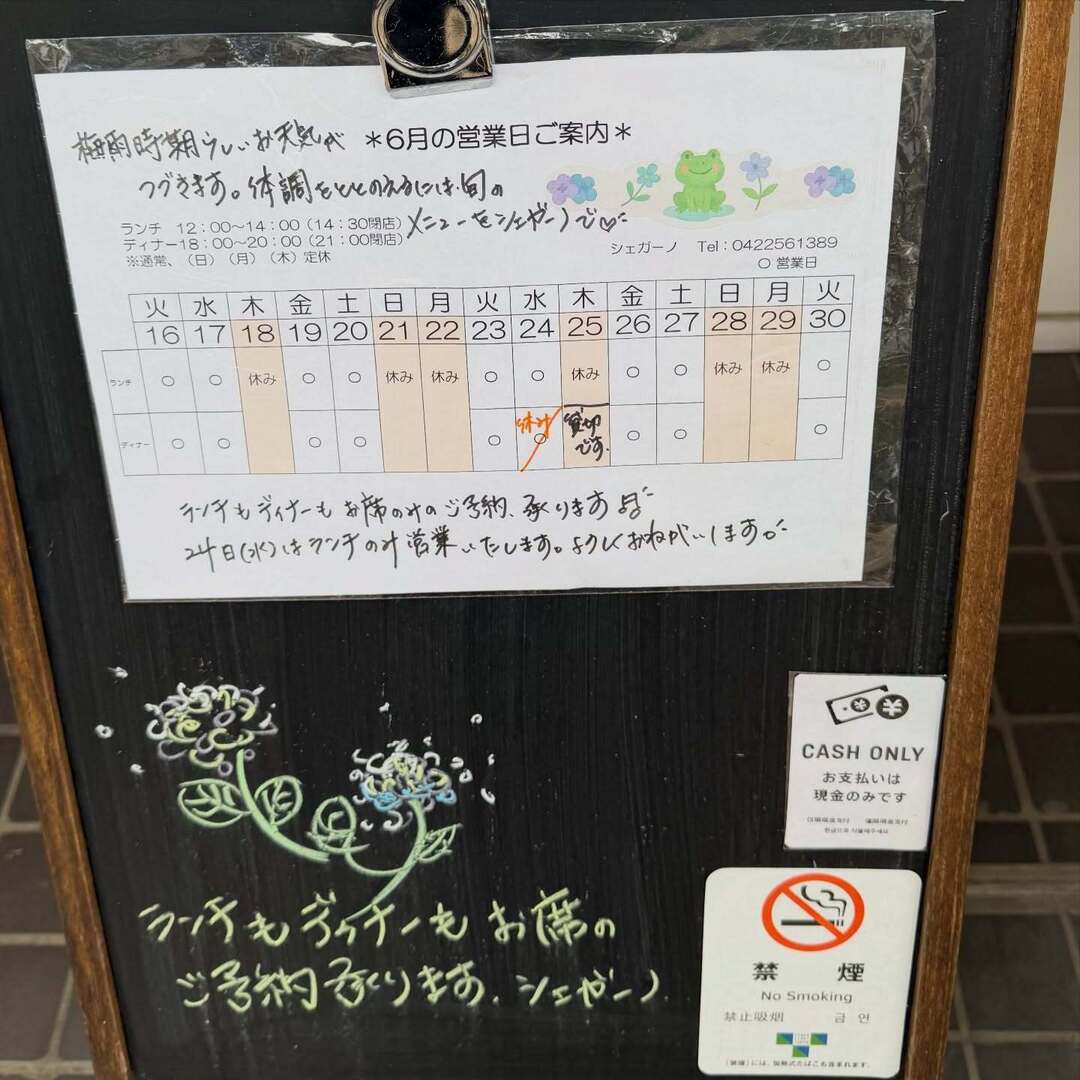 ＊6月の営業日ご案内＊
梅雨時期らしいお天気が
つづきます。体調をととのえるには旬の
メニューをシェガーノで♡
ランチ　12：00～14：00（14：30閉店）
ディナー18：00～20：00（21：00閉店）
※通常、（日）（月）（木）定休
シェガーノ　Tel：0422561389
○ 営業日
火 水 木 金 土 日 月 火 水 木 金 土 日 月 火
16 17 18 19 20 21 22 23 24 25 26 27 28 29 30
ランチ ○ ○ 休み ○ ○ 休み 休み ○ ○ 休み ○ ○ 休み 休み ○
ディナー ○ ○ ○ ○ ○ 休み ○ 貸切 ○ ○ ○
です。
ランチもディナーもお席のみのご予約、承ります
24日(水)はランチのみ営業いたします。よろしくおねがいします。
CASH ONLY
お支払いは
現金のみです
ランチもディナーもお席の
ご予約承ります。シェガーノ
禁煙
No Smoking
禁止吸烟 금연